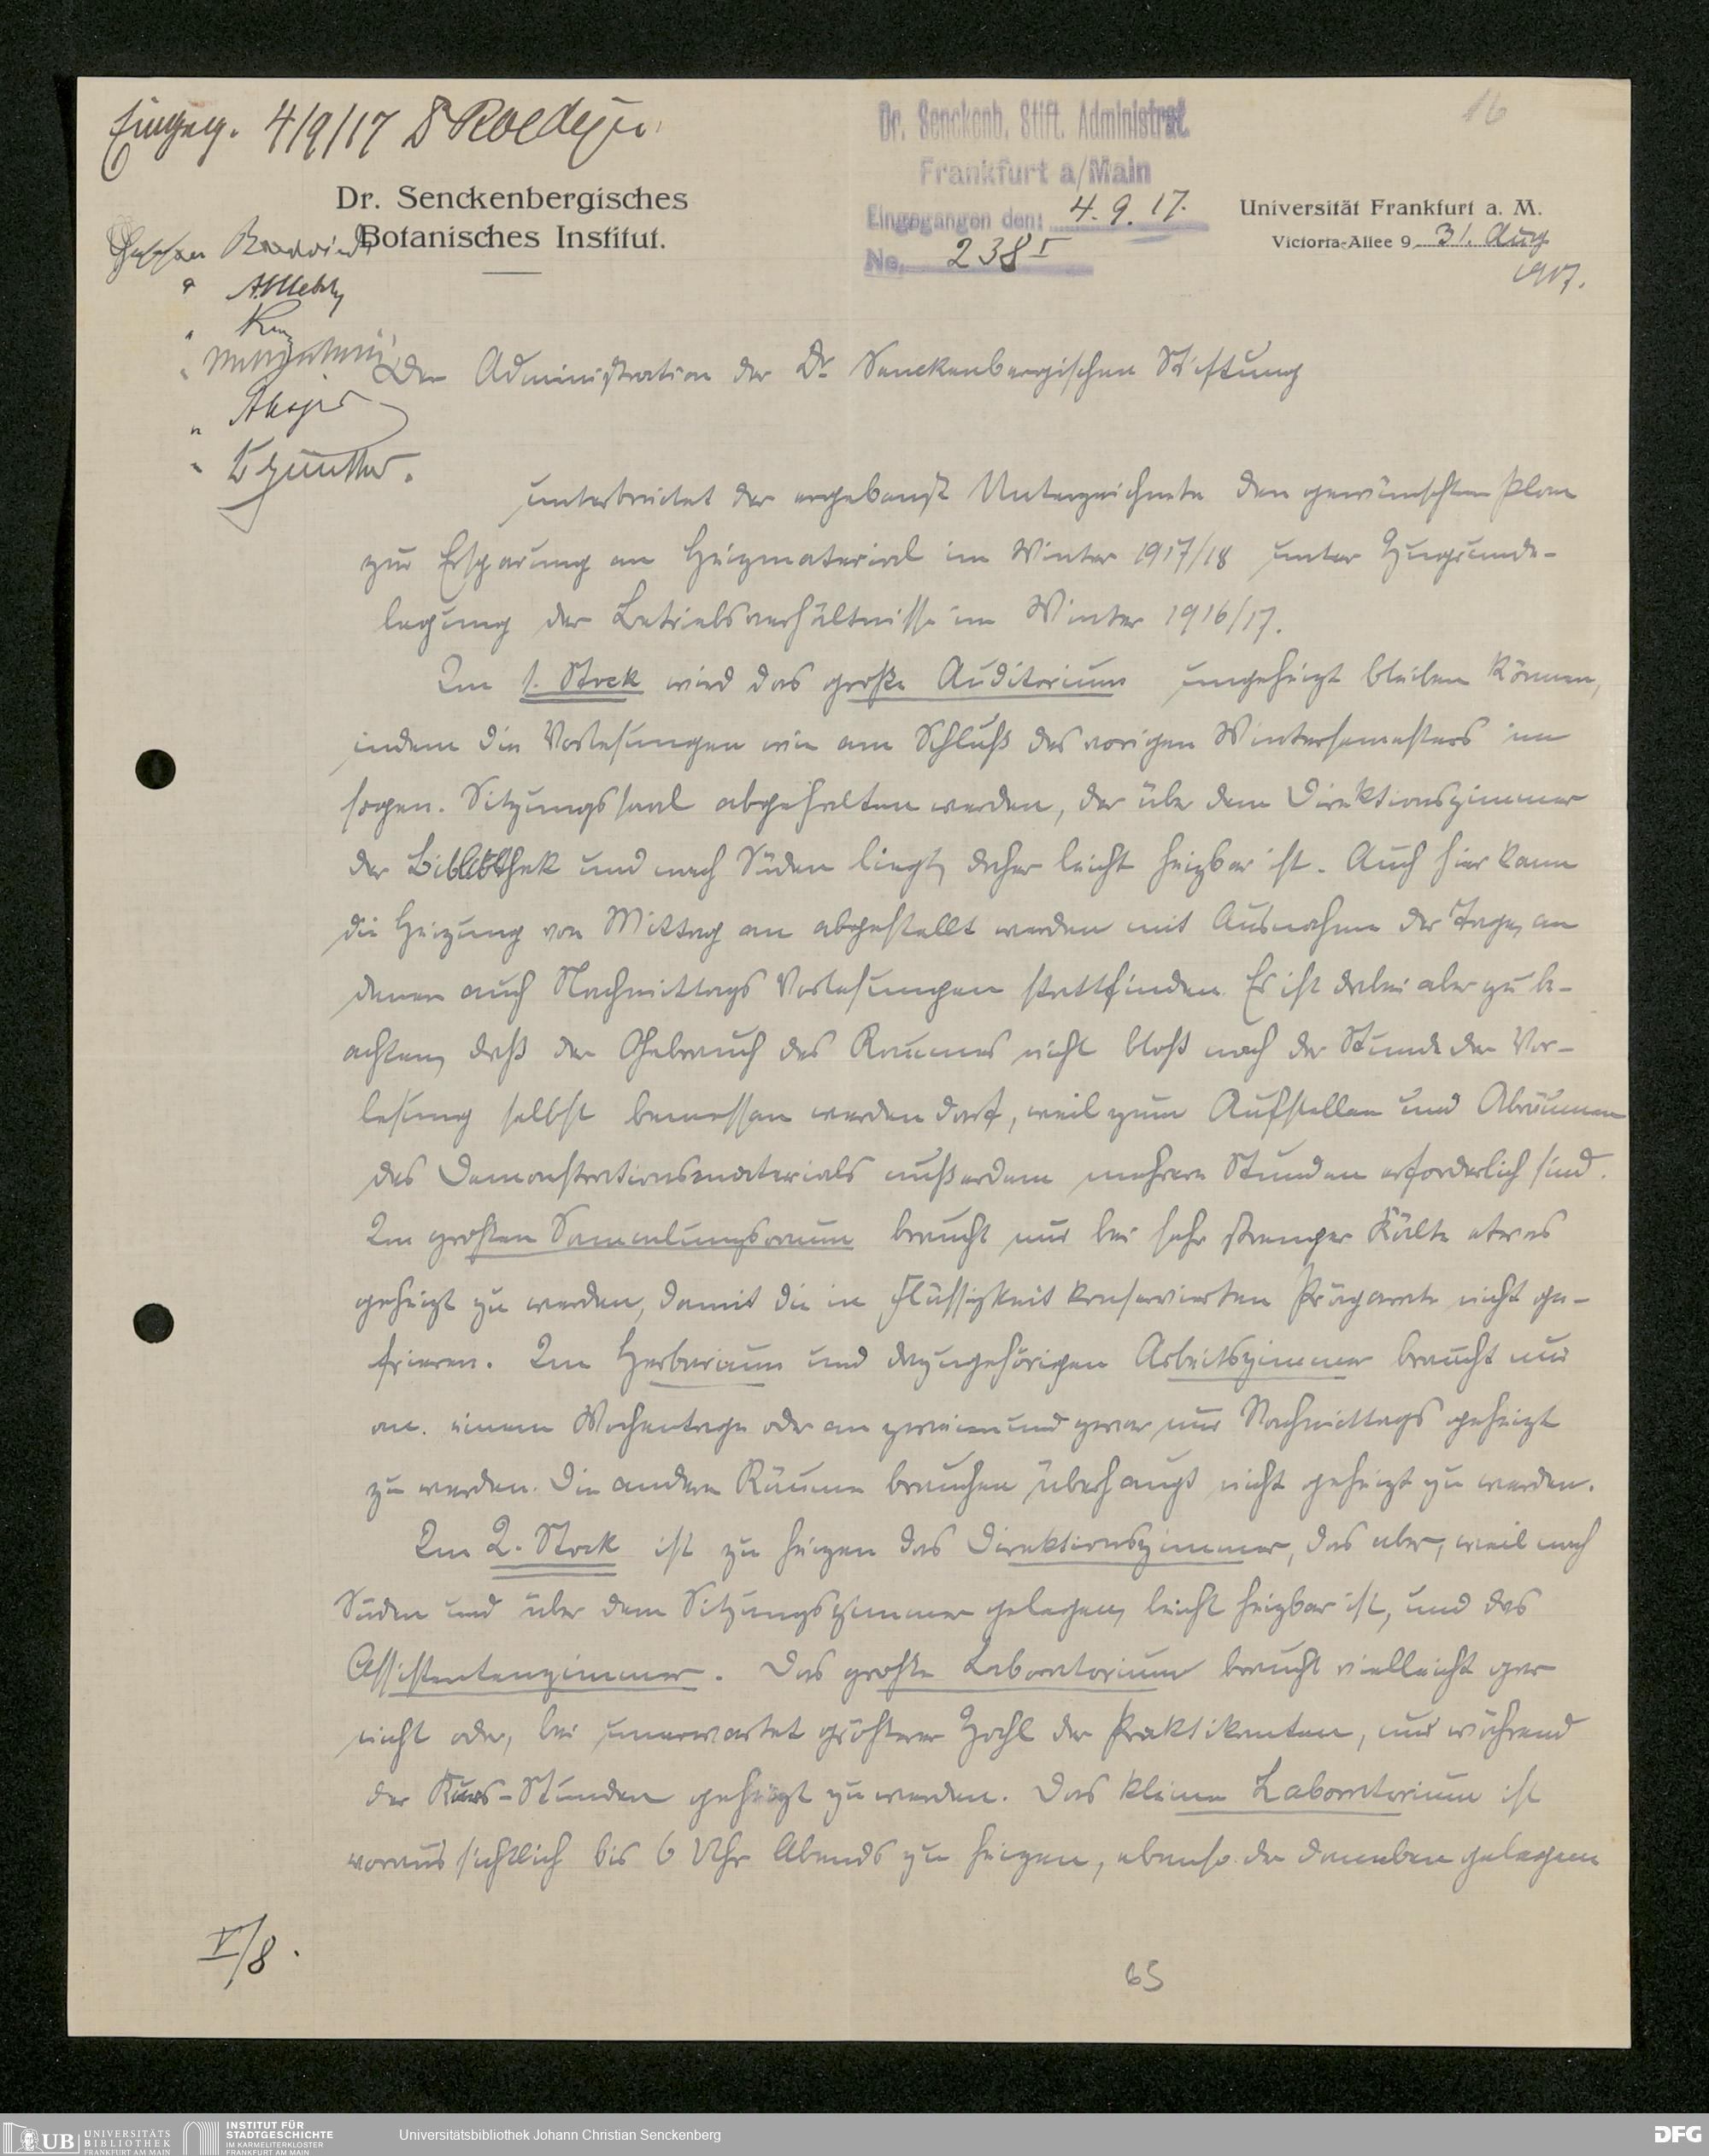 Eingeg. 4/9/17 D Roediger
16
Dr. Senckenb. Stift. Administrat.
Frankfurt a/Main
Eingegangen den: 4. 9. 17.
No. 238 I
Dr. Senckenbergisches
Botanisches Institut.
Universität Frankfurt a. M.
Victoria-Allee 9, 31. Aug
1917.
Gesehen
" 
"
"
"
" Günther.
Der Administration der Dr. Senckenbergischen Stiftung
unterbreitet der ergebenst Unterzeichnete den gewünschten Plan
zur Ersparung an Heizmaterial im Winter 1917/18 unter Zugrunde-
legung der Betriebsverhältnisse im Winter 1916/17.
Im 1. Stock wird das große Auditorium ungeheizt bleiben können,
indem die Vorlesungen wie am Schluß des vorigen Wintersemesters im
sogen. Sitzungssaal abgehalten werden, der über dem Direktionszimmer
der Bibliothek und nach Süden liegt, daher leicht heizbar ist. Auch hier kann
die Heizung von Mittag an abgestellt werden mit Ausnahme der Tage, an
denen auch Nachmittags Vorlesungen stattfinden. Es ist dabei aber zu be-
achten, daß der Gebrauch des Raumes nicht bloß nach der Stunde der Vor-
lesung selbst bemessen werden darf, weil zum Aufstellen und Abräumen
des Demonstrationsmaterials außerdem mehrere Stunden erforderlich sind.
Im großen Sammlungsraum braucht nur bei sehr strenger Kälte etwas
geheizt zu werden, damit die in Flüssigkeit konservierten Präparate nicht ge-
frieren. Im Herbarium und dazugehörigen Arbeitszimmer braucht nur
an einem Wochentage oder an zweien und zwar nur Nachmittags geheizt
zu werden. Die andern Räume brauchen überhaupt nicht geheizt zu werden.
Im 2. Stock ist zu heizen das Direktionszimmer, das aber, weil nach
Süden und über dem Sitzungszimmer gelegen, leicht heizbar ist, und das
Assistentenzimmer. Das große Laboratorium braucht vielleicht gar
nicht oder, bei unerwartet größerer Zahl der Praktikanten, nur während
der Kurs-Stunden geheizt zu werden. Das kleine Laboratorium ist
voraussichtlich bis 6 Uhr Abends zu heizen, ebenso der daneben gelegene
V/8.
65
UB UNIVERSITÄTS
BIBLIOTHEK
FRANKFURT AM MAIN
INSTITUT FÜR
STADTGESCHICHTE
IM KARMELITERKLOSTER
FRANKFURT AM MAIN
Universitätsbibliothek Johann Christian Senckenberg
DFG